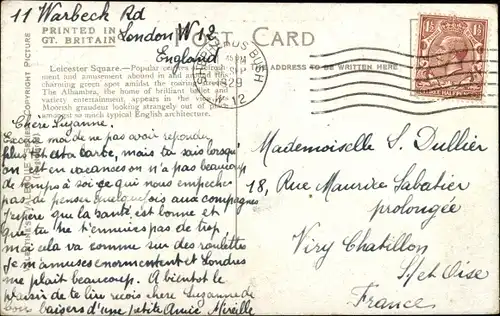 11 Warbeck Rd
London W 12
England
PRINTED IN
GT. BRITAIN
POST CARD
ADDRESS TO BE WRITTEN HERE
SHEPHERDS BUSH
SEP
1929
W.12
Leicester Square.—Popular centre of
ment and amusement abound in and around this
charming green spot amidst the roaring
The Alhambra, the home of brilliant ballet and
variety entertainment, appears in the view
Moorish grandeur looking strangely out of place
amongst so much typical English architecture.
COPYRIGHT PICTURE
Chère Suzanne.
Excuse moi de ne pas avoir repondu
plus tôt à ta carte, mais tu sais lorsqu'
on est en vacances on n'a pas beaucoup
de temps à soi ce qui nous empêche
pas de penser quelquefois aux compagnes
j'espere que la santé est bonne et
que tu ne t'ennuies pas de trop
moi cela va comme sur des roulettes
Je m'amuse enormement et Londres
me plait beaucoup. A bientôt le
plaisir de te lire reçois chere Suzanne de
bon baisers d'une petite Amie Mireille
Mademoiselle S. Dullier
18, Rue Maurice Sabatier
prolongée
Viry Chatillon
S/et Oise
France
1½